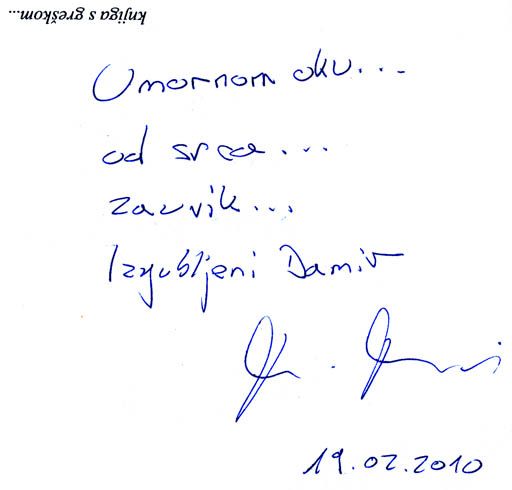 knjiga s greškom...
Umornom oku...
od srca...
zauvik...
Izgubljeni Damir
19.02.2010